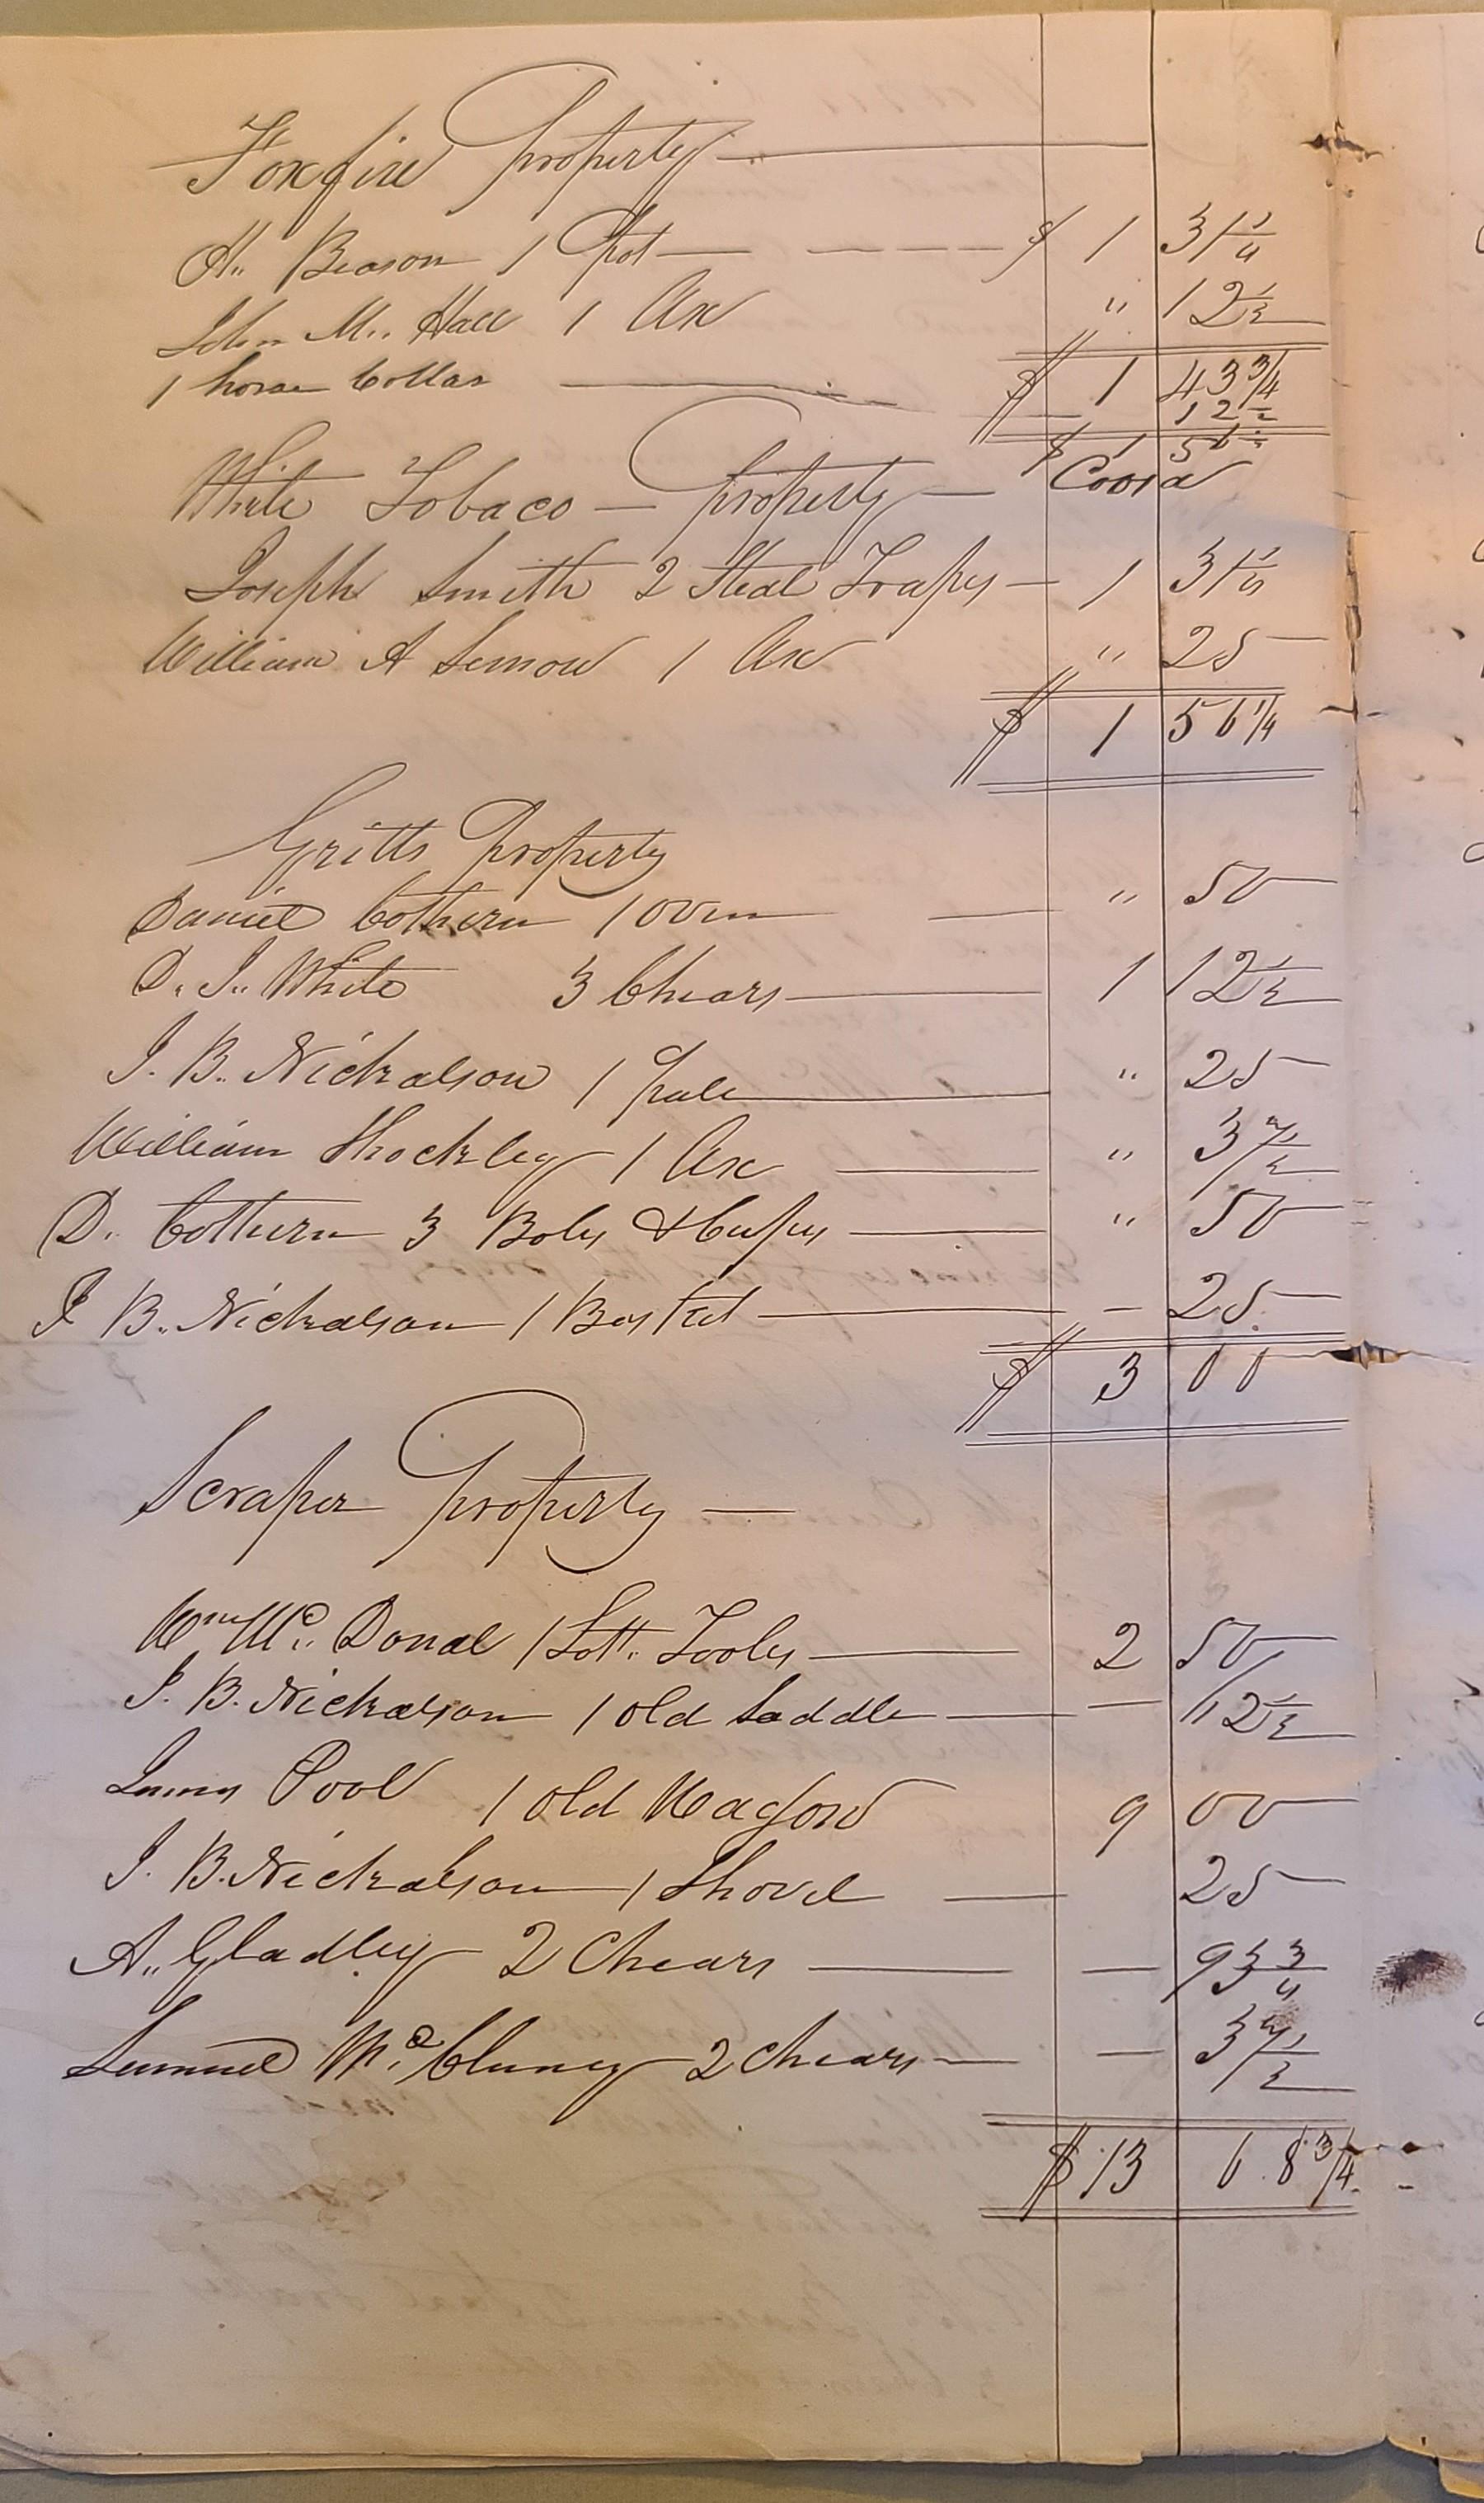 Foxfire Property
H. Beason 1 Pot $ 1 31 1/4
John M. Hall 1 Ax " 12 1/2
$ 1 43 3/4
1 horse Collar 12 1/2
$ 1 56 1/4
White Tobaco — Property — Coosa
Joseph Smith 2 Steal Traps — 1 31 1/4
William A Lemow 1 Ax " 25
$ 1 56 1/4
Gritts Property
Daniel Cothern 1 Oven — " 50
D. J. White 3 Chears — 1 12 1/2
J. B. Nickalson 1 pale " 25
William Shockley 1 Ax — " 37 1/2
D. Cothern 3 Boles & Cups — " 50
J B. Nickalson 1 Basket — - 25
$ 3 00
Scraper Property —
Wm Mc. Donal 1 Lott. Tools — 2 50
J. B. Nickalson 1 old Saddle — — 12 1/2
James Pool 1 old Wagon 9 00
J. B. Nickalson 1 Shovel — 25
A. Gladley 2 Chears — — 93 3/4
Samuel Mc. Cluney 2 chears — — 37 1/2
$ 13 68 3/4